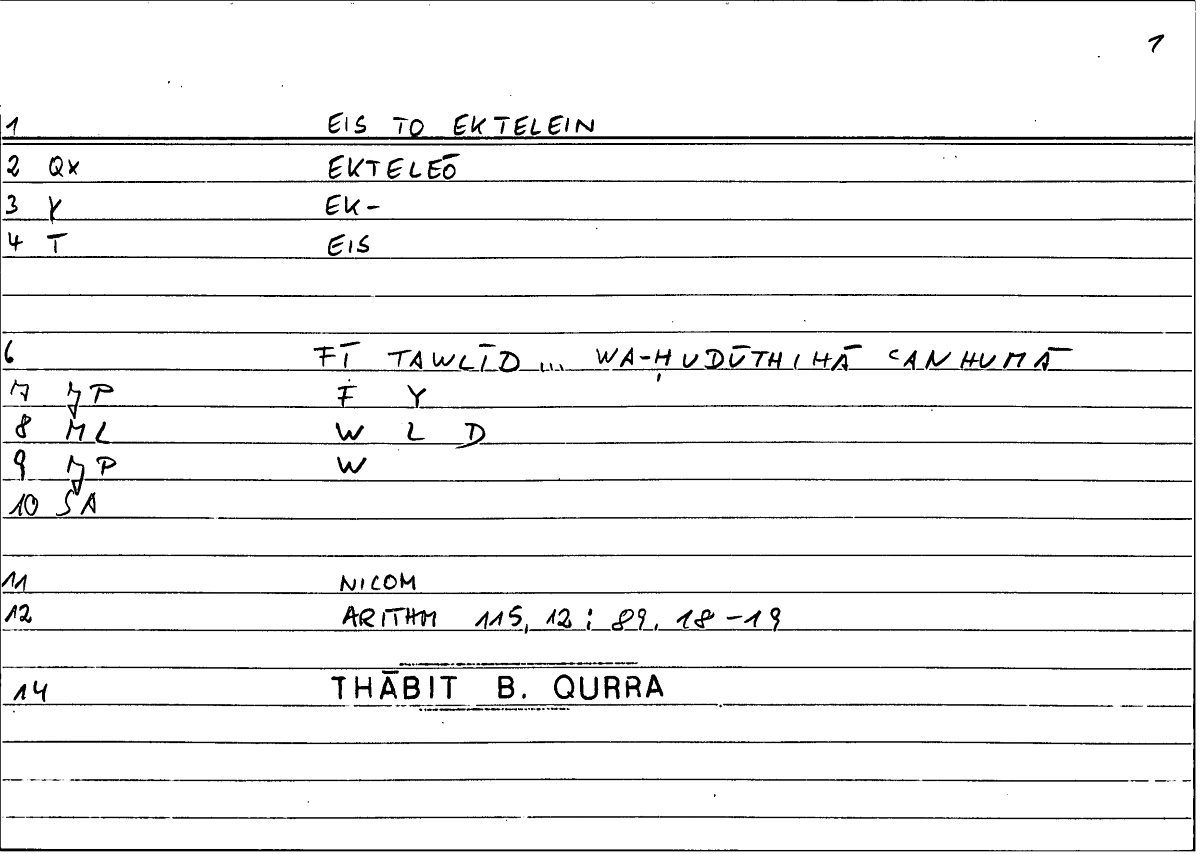 1
1 EIS TO EKTELEIN
2 QX EKTELEŌ
3 Y EK-
4 T EIS
6 FĪ TAWLĪD ... WA-ḤUDŪTHIHĀ ʿANHUMĀ
7 JP F Y
8 ML W L D
9 JP W
10 SA
11 NICOM
12 ARITHM 115, 12 : 89, 18-19
14 THĀBIT B. QURRA